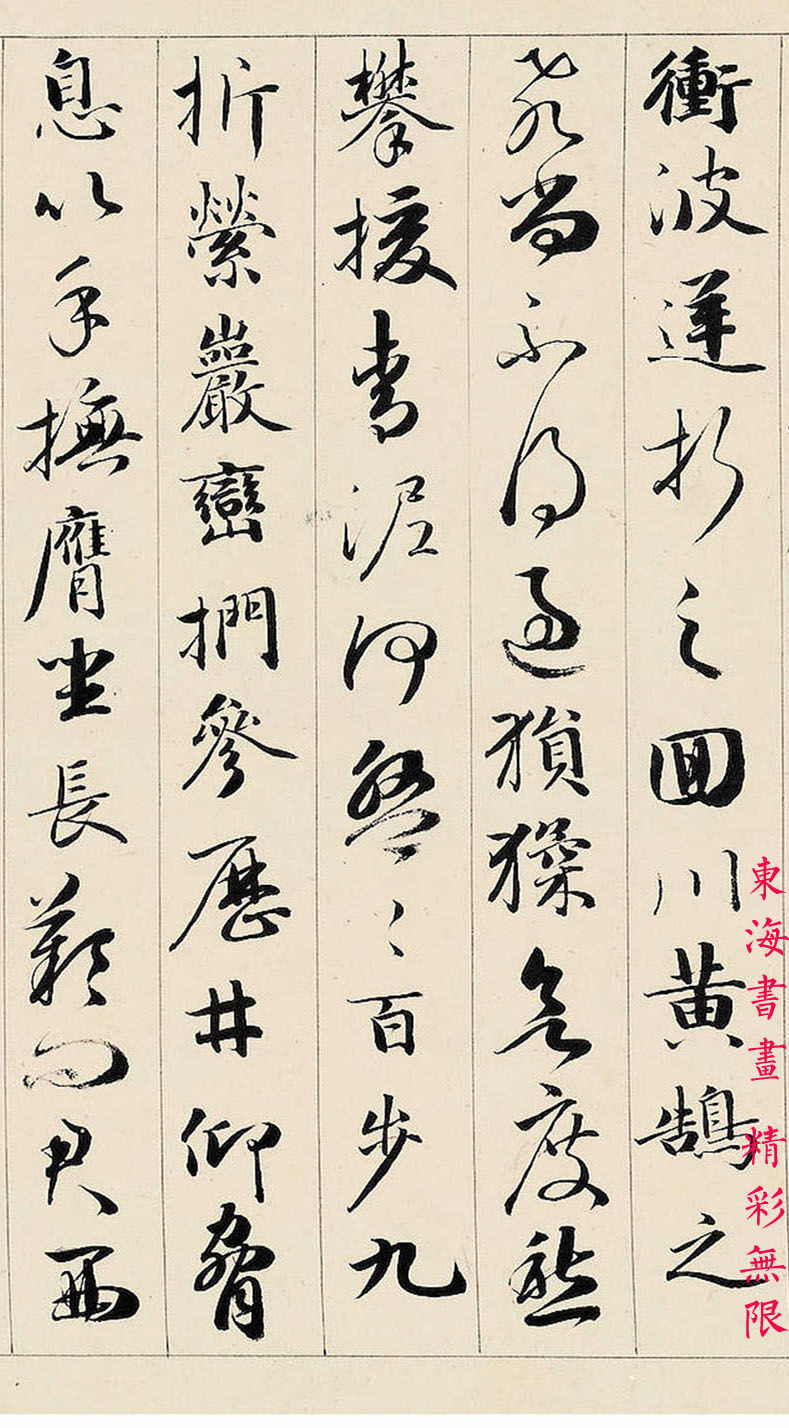 衝波逆折之囬川黃鵠之
飛尚不得過猿猱欲度愁
攀援青泥何盤〻百步九
折縈巖巒捫參歷井仰脅
息以手撫膺坐長歎問君西
東海書畫 精彩無限